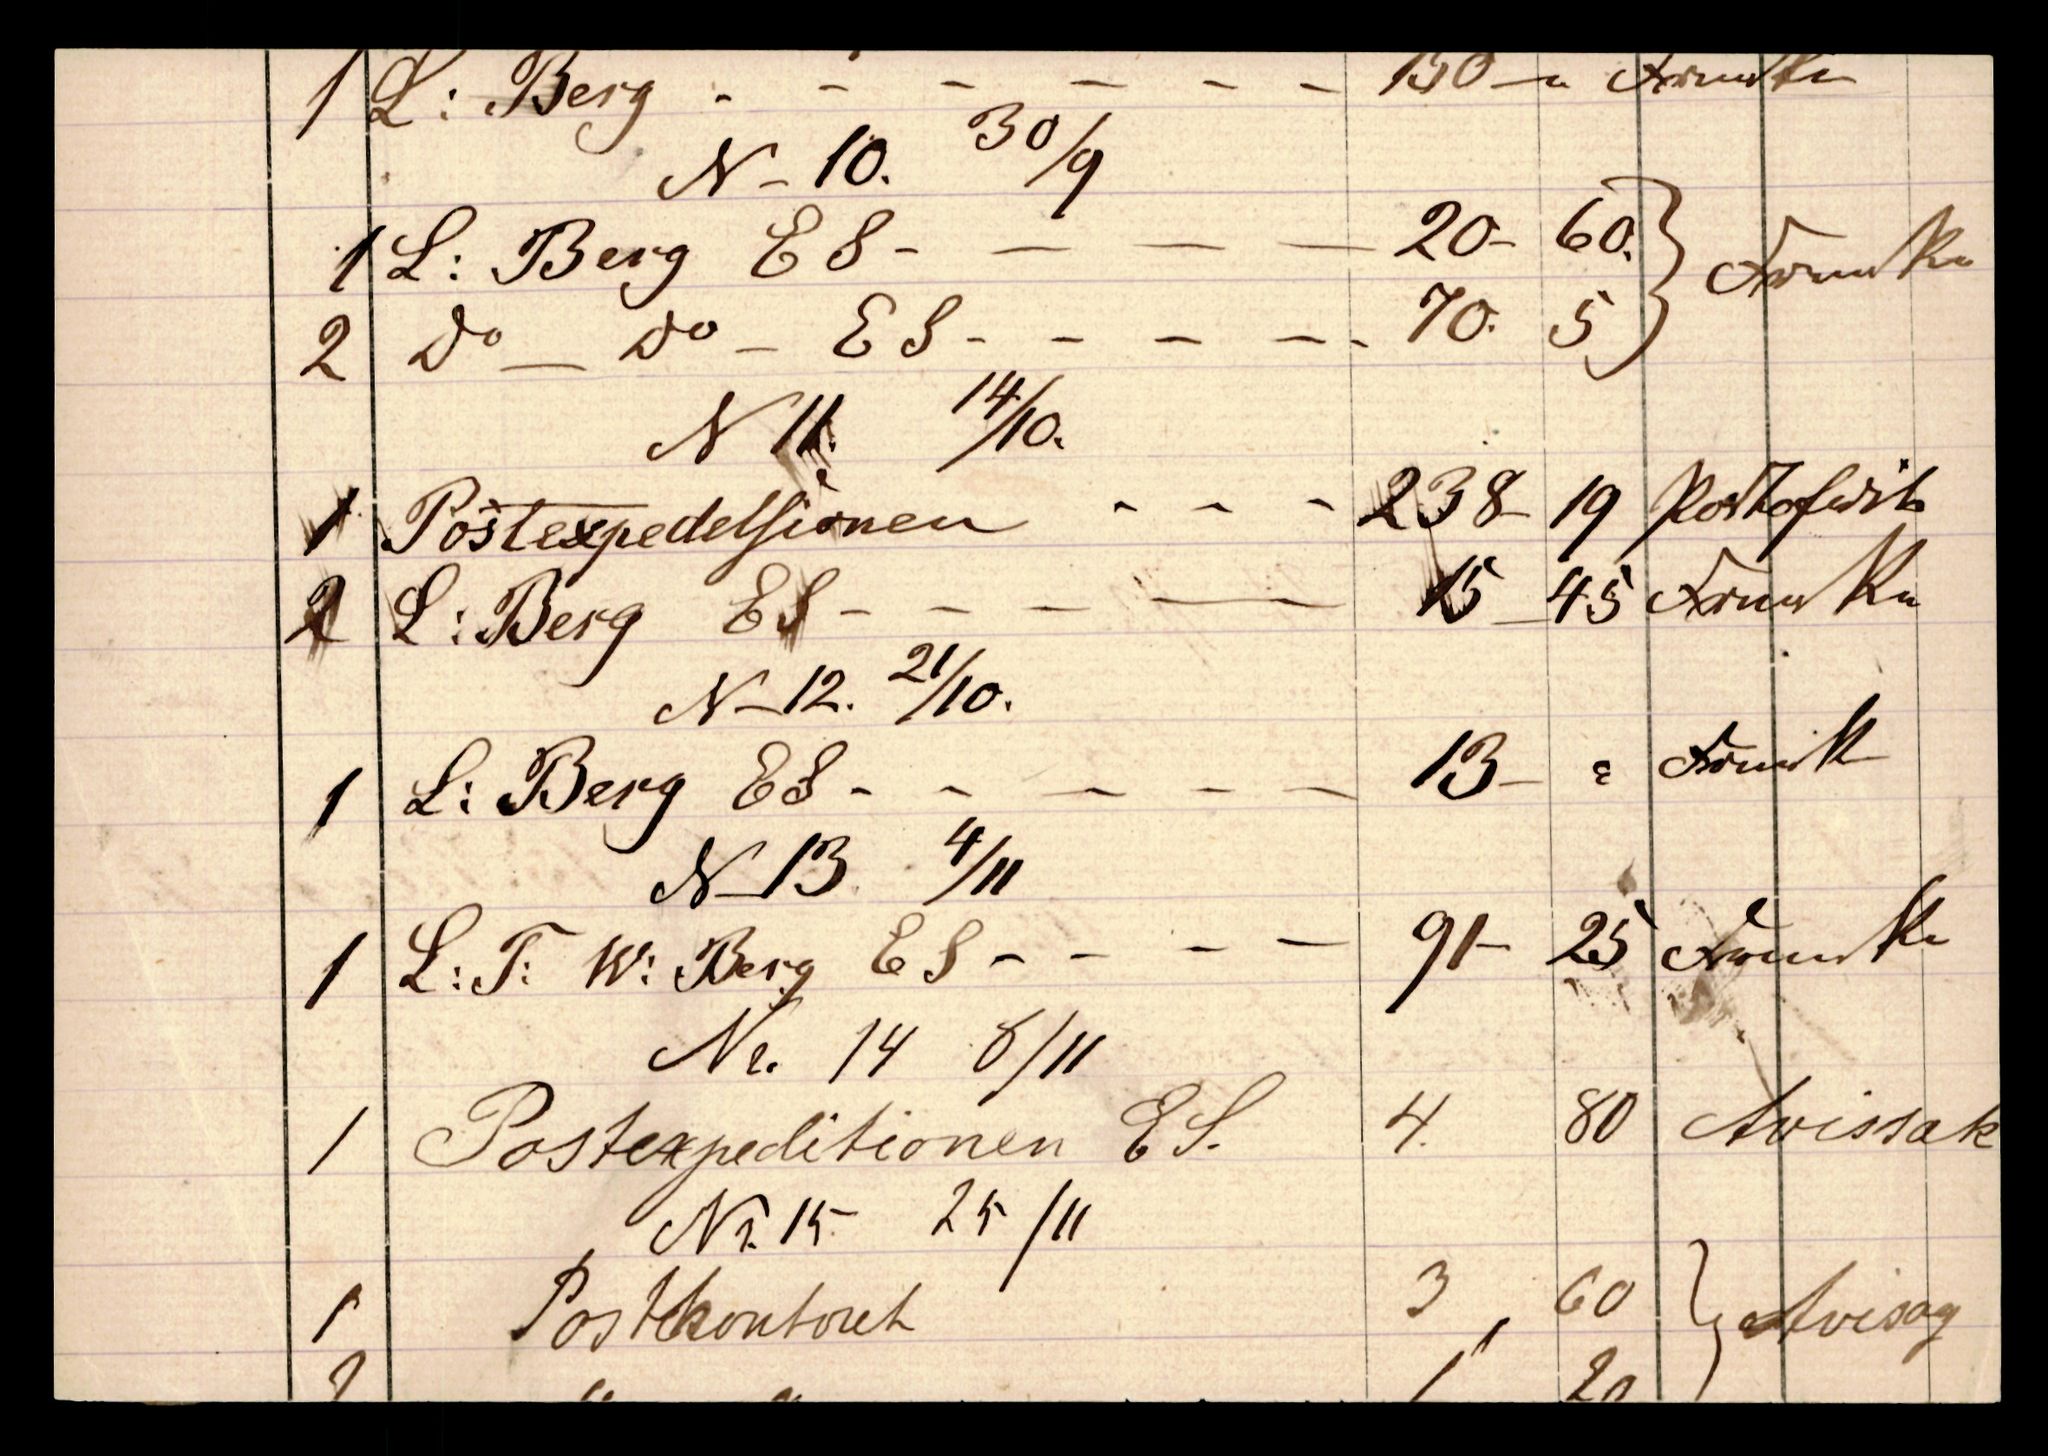 1 L: Berg - - - - - - 150 - "
N - 10. 30/9
1 L: Berg E S - - - 20 - 60.
2 Do - Do - E S - - - - - 70. 5
N 11. 14/10.
1 Postexpedelsionen - - - 238 - 19
2 L: Berg ES - - - - 15 - 45
N - 12. 21/10.
1 L: Berg ES - - - - - 13 - "
N - 13 4/11
1 L: T: W: Berg E S - - - - 91 - 25
Nr. 14 8/11
1 Postexpeditionen ES. 4. 80 Avissak
Nr. 15 25/11
1 Postkontoret 3, 60 Avisag
2 " " 1 20